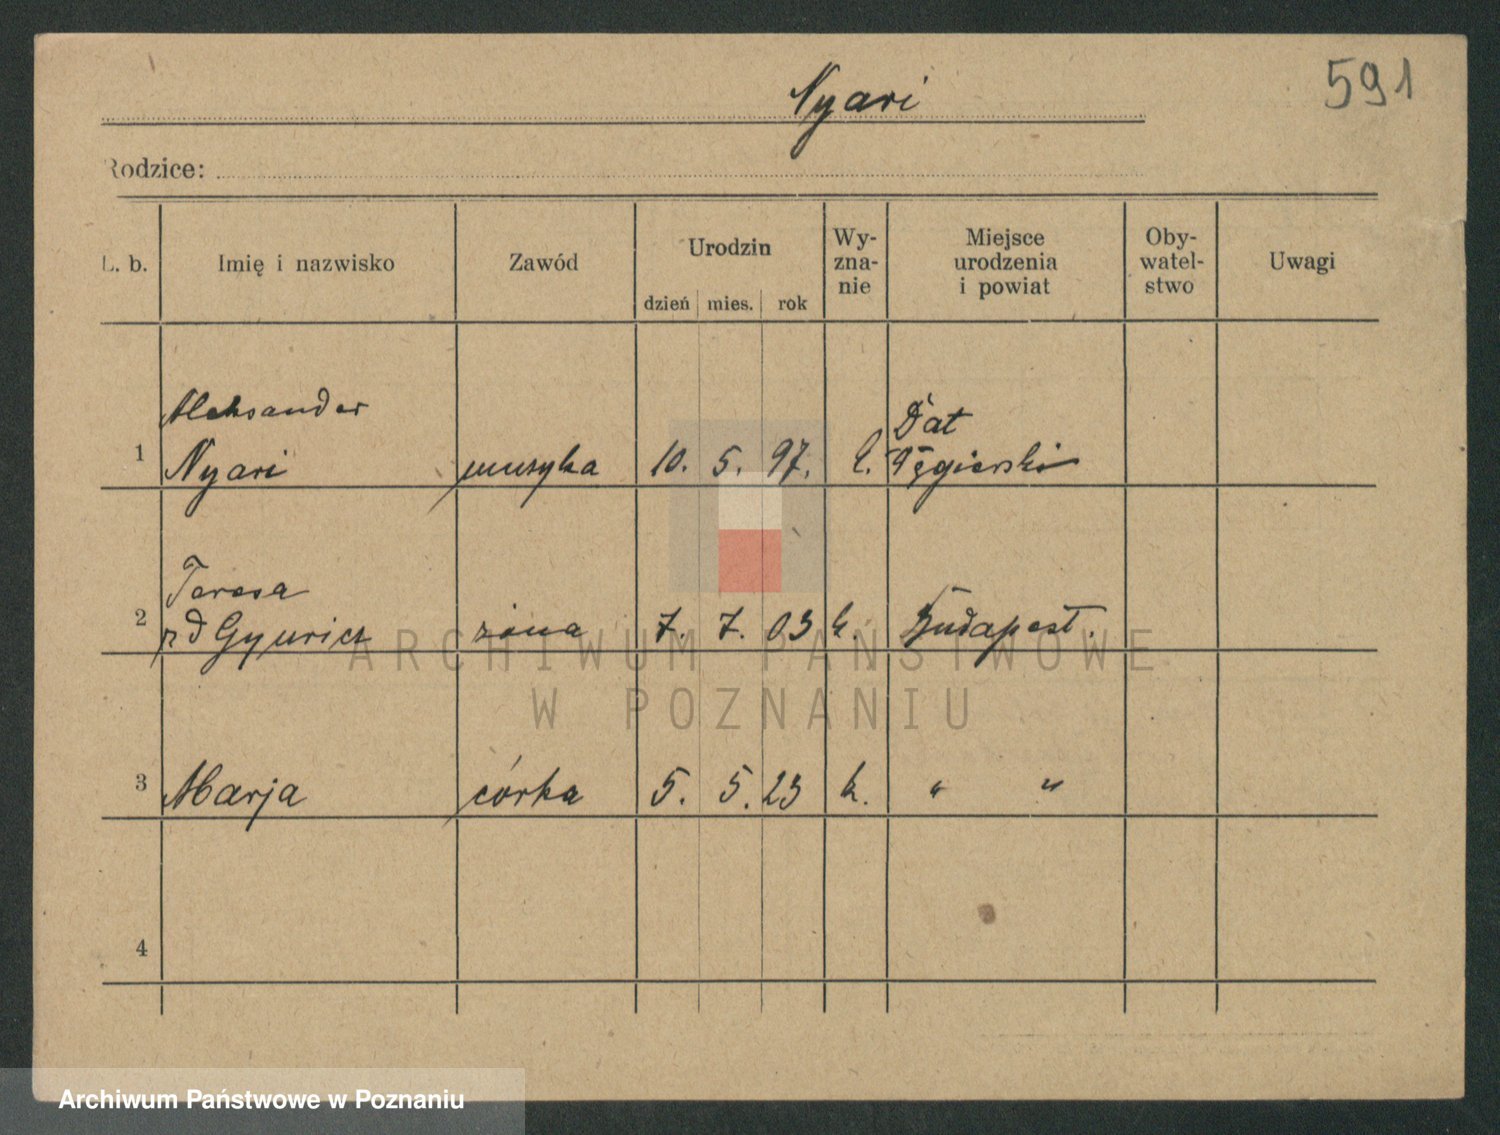 Nyari
591
Rodzice:
L. b.
Imię i nazwisko
Zawód
Urodzin
dzień mies. rok
Wy-
zna-
nie
Miejsce
urodzenia
i powiat
Oby-
watel-
stwo
Uwagi
Aleksander
1 Nyari muzyka 10. 5. 97.
Dat
Węgierski
Teresa
2 zd Gyuricz żona 7. 7. 03 k. Budapest.
3 Marja córka 5. 5. 23 k. " "
4
ARCHIWUM PAŃSTWOWE
W POZNANIU
Archiwum Państwowe w Poznaniu